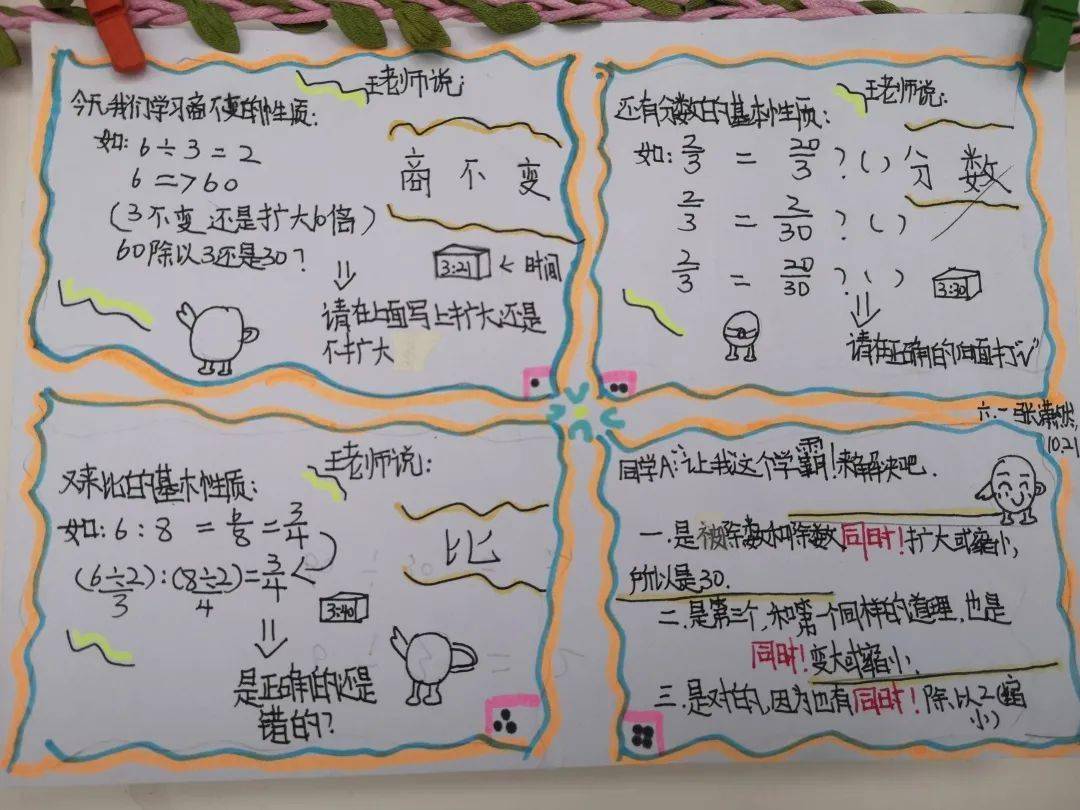 王老师说:
今天,我们学习商不变的性质:
如: 6÷3=2
6=>60
(3不变 还是扩大10倍)
60除以3还是30?
商 不 变
3:21 ← 时间
请在上面写上扩大还是
不扩大
王老师说:
还有分数的基本性质:
如: 2/3 = 20/3 ? ( )
2/3 = 2/30 ? ( )
2/3 = 20/30 ? ( )
分 数
3:30
请在正确的后面打"√"
六.一 张潇然,
10.21
王老师说:
又来比的基本性质:
如: 6:8 = 6/8 = 3/4
(6÷2):(8÷2)=3/4
3 4
比
3:40
是正确的还是
错的?
同学A:让我这个学霸!来解决吧.
一.是被除数和除数,同时!扩大或缩小,
所以是30.
二.是第三个,和第一个同样的道理,也是
同时!变大或缩小.
三.是对的,因为也有同时!除以2(缩
小)